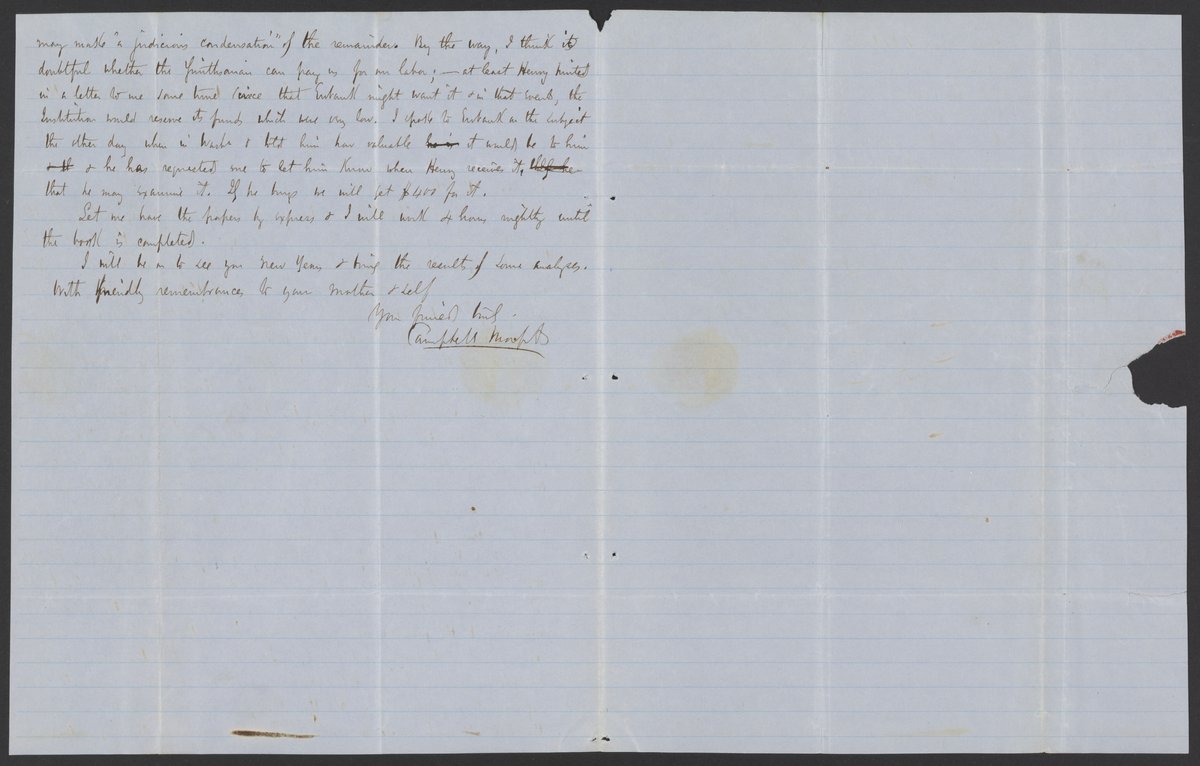 may make "a judicious condensation" of the remainder. By the way, I think it
doubtful whether the Smithsonian can pay us for our labor; — at least Henry hinted
in a letter to me some time since that Ewbank might want it & in that event, the
Institution would reserve its funds which were very low. I spoke to Ewbank on the subject
the other day when in Washn & told him how valuable it would be to him
& he has requested me to let him know when Henry receives it,
that he may examine it. If he buys we will get $400 for it.
Let me have the papers by express & I will work 4 hours nightly until
the book is completed.
I will be on to see you New Years & bring the results of some analyses.
With friendly remembrances to your mother & self
Your friend truly
Campbell Morfit